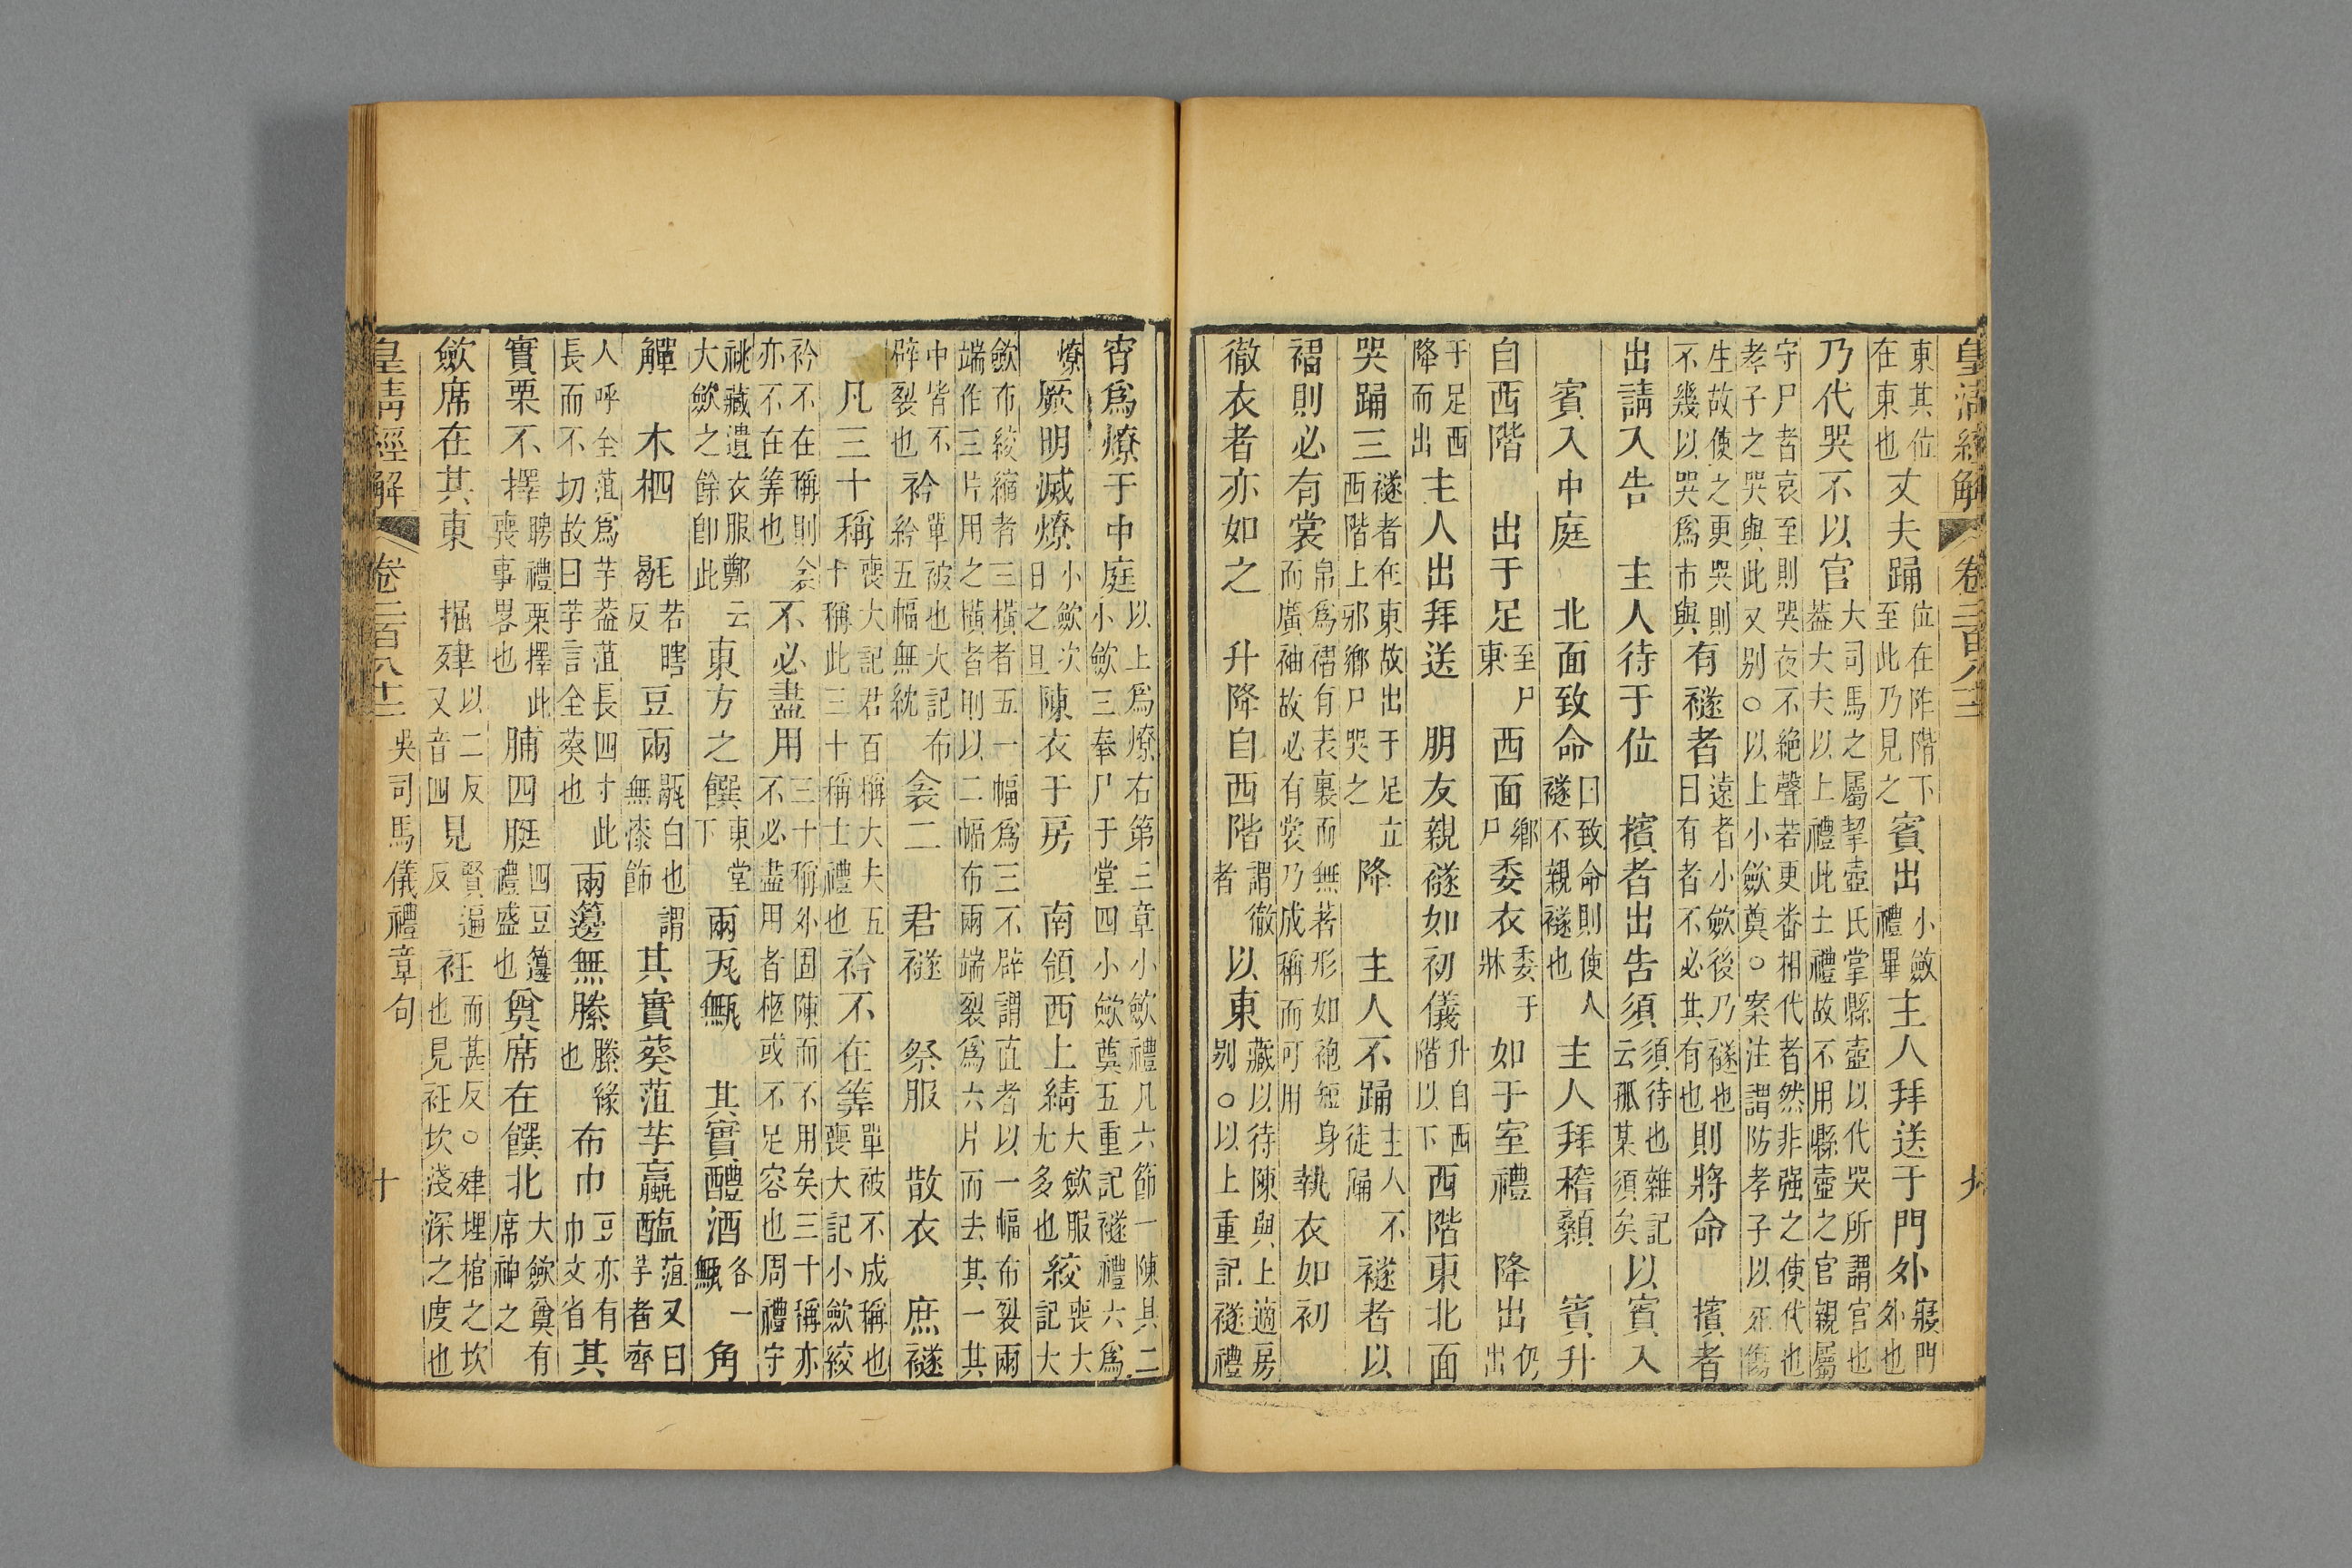 皇清經解 卷二百八十二 九
東其位在東也丈夫踊位在阼階下至此乃見之賓出小斂禮畢主人拜送于門外寢門外也
乃代哭不以官大司馬之屬挈壺氏掌縣壺以代哭所謂官也葢大夫以上禮此士禮故不用縣壺之官親屬
守尸者哀至則哭夜不絶聲若更番相代者然非强之使代也孝子之哭與此又别○以上小歛奠○案注謂防孝子以死傷
生故使之更哭則不幾以哭爲市與有襚者遠者小歛後乃襚也曰有者不必其有也則將命 擯者
出請入告 主人待于位 擯者出告須須待也雜記云孤某須矣以賓入
賓入中庭 北面致命曰致命則使人襚不親襚也主人拜稽顙 賓升
自西階 出于足至尸東西面鄉尸委衣委于牀如于室禮 降出仍出
于足西降而出主人出拜送 朋友親襚如初儀升自西階以下西階東北面
哭踊三襚者在東故出于足立西階上邪鄉尸哭之降 主人不踊主人不徒踊襚者以
褶則必有裳帛爲褶有表裏而無著形如袍短身而廣袖故必有裳乃成稱而可用執衣如初
徹衣者亦如之 升降自西階謂徹者以東藏以待陳與上適房别○以上重記襚禮
宵爲燎于中庭以上爲燎右第三章小歛禮凡六節一陳其二小歛三奉尸于堂四小歛奠五重記襚禮六爲
燎厥明滅燎小歛次日之旦陳衣于房 南領西上綪大歛服尤多也絞喪大記大
歛布絞縮者三橫者五一幅爲三不辟謂直者以一幅布裂兩端作三片用之橫者則以二幅布兩端裂爲六片而去其一其
中皆不辟裂也紟單被也大記布紟五幅無紞衾二 君襚 祭服 散衣 庶襚
凡三十稱喪大記君百稱大夫五十稱此三十稱士禮也紟不在筭單被不成稱也喪大記小歛絞
紟不在稱則衾亦不在筭也不必盡用三十稱外固陳而不用矣三十稱亦不必盡用者柩或不足容也周禮守
祧藏遺衣服鄭云大歛之餘卽此東方之饌東堂下兩瓦甒 其實醴酒各一甒角
觶 木柶 毼苦瞎反豆兩毼白也謂無漆飾其實葵菹芋蠃醢菹又曰芋者齊
人呼全菹爲芋葢菹長四寸此長而不切故曰芋言全葵也兩籩無縢縢緣也布巾豆亦有巾文省其
實栗不擇聘禮栗擇此喪事畧也脯四脡四豆籩禮盛也奠席在饌北大歛奠有席神之
歛席在其東 掘肂以二反又音四見賢遍反衽而甚反○肂埋棺之坎也見衽坎淺深之度也
皇清經解 卷二百八十二 吳司馬儀禮章句 十